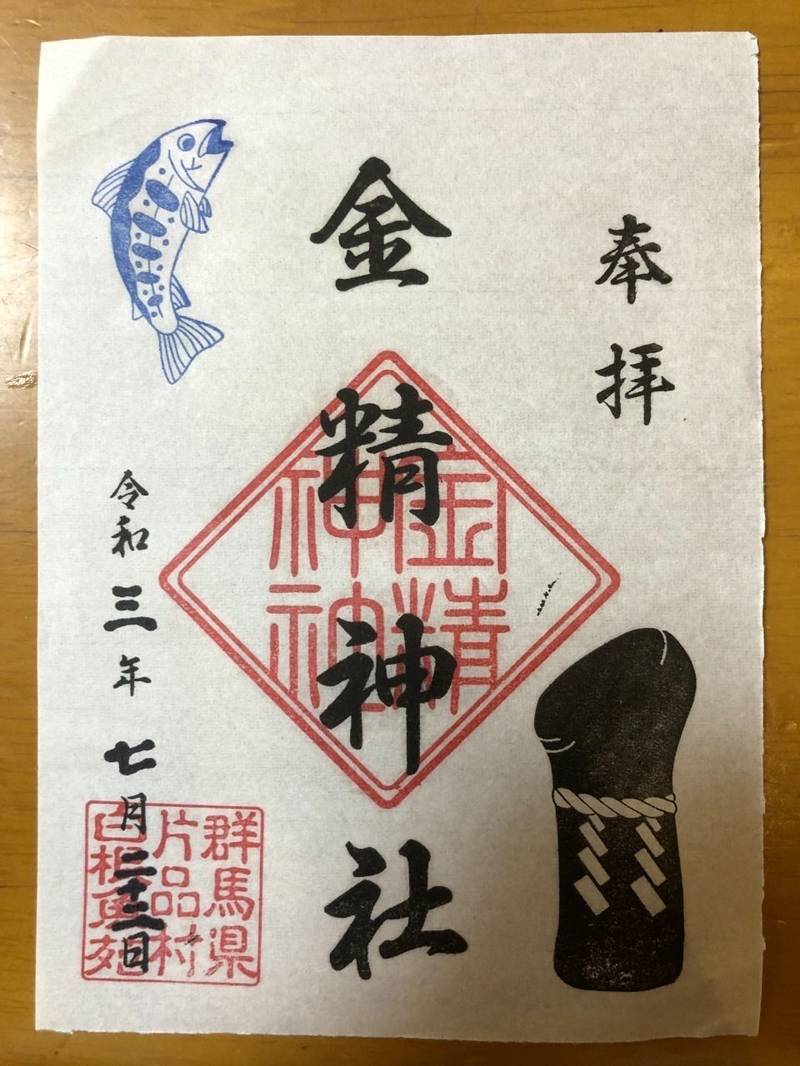 奉拝
金精神社
金精
神社
令和三年七月二十
群馬県
片品村
白根